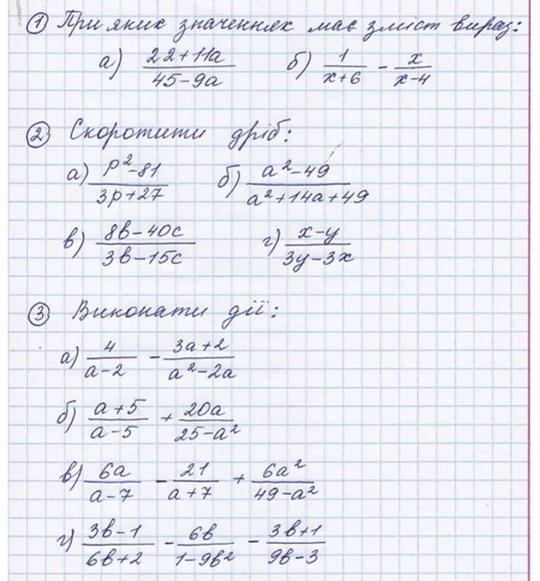 ① При яких значеннях має зміст вираз:
а) (22+11a)/(45-9a) б) 1/(x+6) - x/(x-4)
② Скоротити дріб:
а) (p²-81)/(3p+27) б) (a²-49)/(a²+14a+49)
в) (8b-40c)/(3b-15c) г) (x-y)/(3y-3x)
③ Виконати дії:
а) 4/(a-2) - (3a+2)/(a²-2a)
б) (a+5)/(a-5) + 20a/(25-a²)
в) 6a/(a-7) - 21/(a+7) + 6a²/(49-a²)
г) (3b-1)/(6b+2) - 6b/(1-9b²) - (3b+1)/(9b-3)